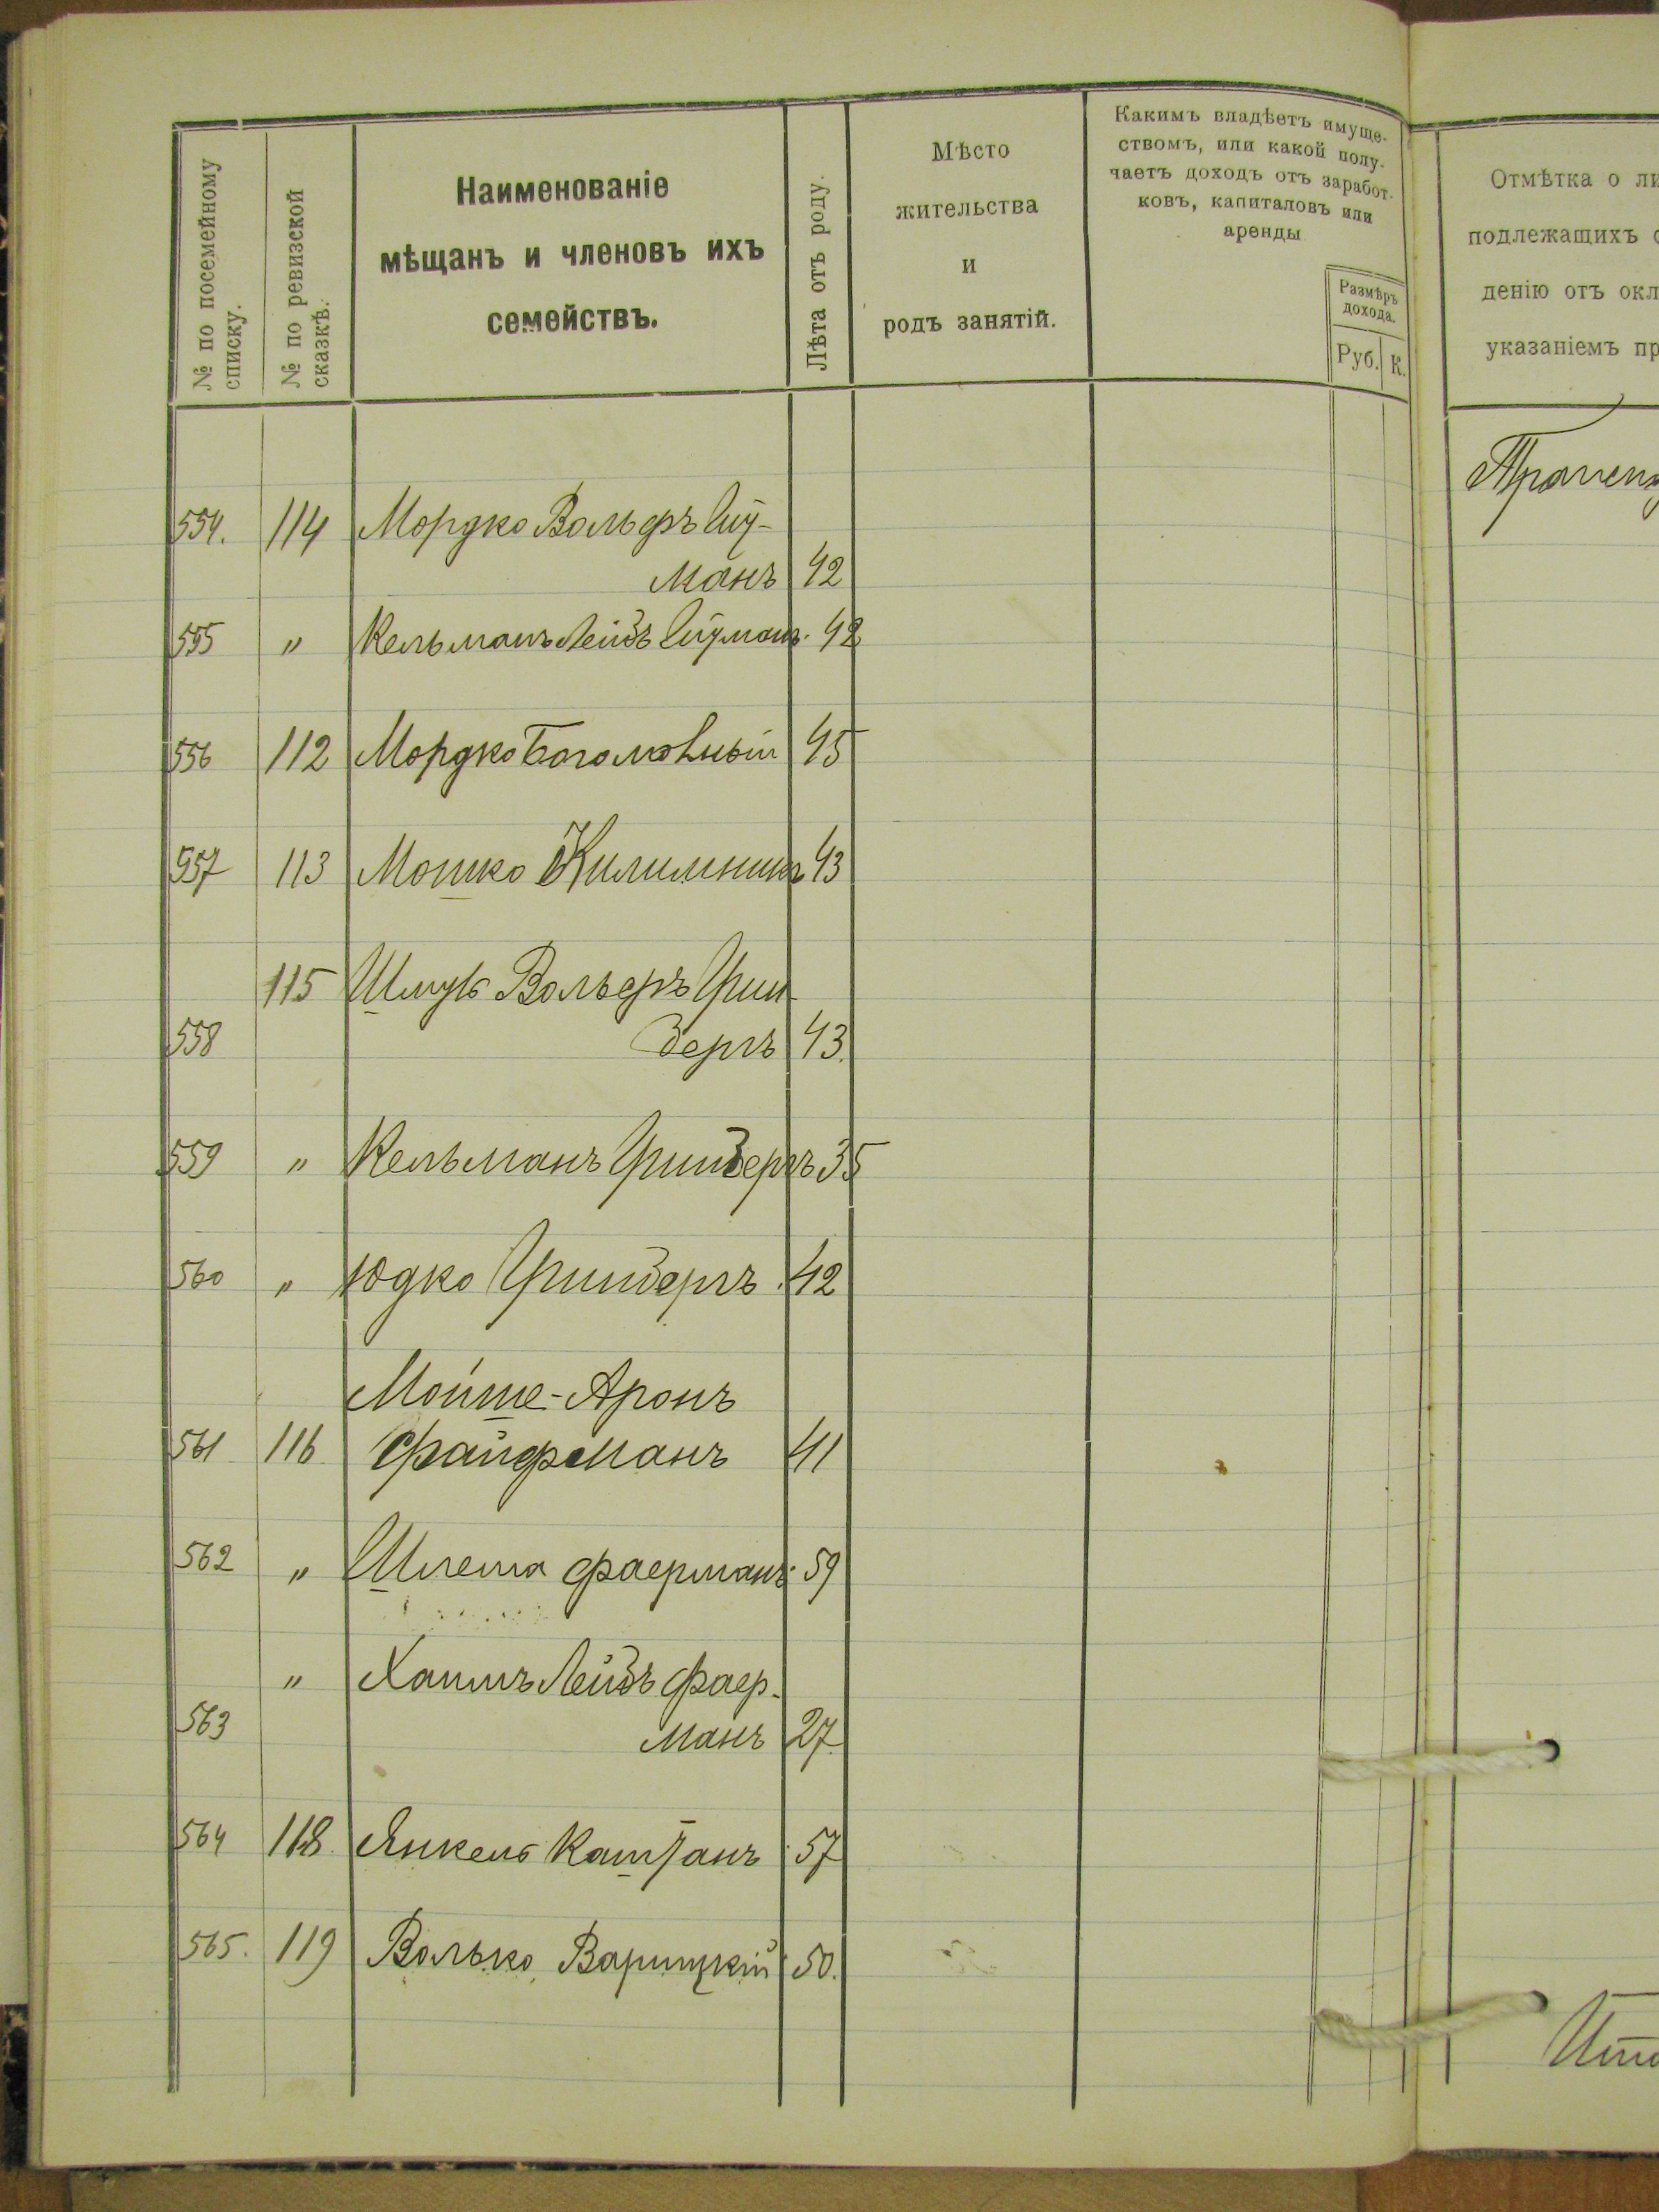 № по посемейному списку.
№ по ревизской сказкѣ.
Наименованіе
мѣщанъ и членовъ ихъ
семействъ.
Лѣта отъ роду.
Мѣсто
жительства
и
родъ занятій.
Какимъ владѣетъ имуще-
ствомъ, или какой полу-
чаетъ доходъ отъ заработ-
ковъ, капиталовъ или
аренды
Размѣръ
дохода.
Руб. К.
Отмѣтка о
подлежащихъ
денію отъ
указаніемъ
554. 114 Мордко Вольфъ
манъ 42
555 " Кельманъ Лейбъ 42
556 112 Мордко Богомольный 45
557 113 Мошко Килимникъ 43
115 Шмуль Вольфъ Грин-
558 бергъ 43.
559 " Кельманъ Гринбергъ 35
560 " Юдко Гринбергъ. 42
Мойше-Аронъ
561 116 Файфманъ 41
562 " Шлема Фаерманъ 59
" Хаимъ Лейбъ Фаер-
563 манъ 27.
564 118 Янкель Каштанъ 57
565. 119 Волько Варшицкій 50.